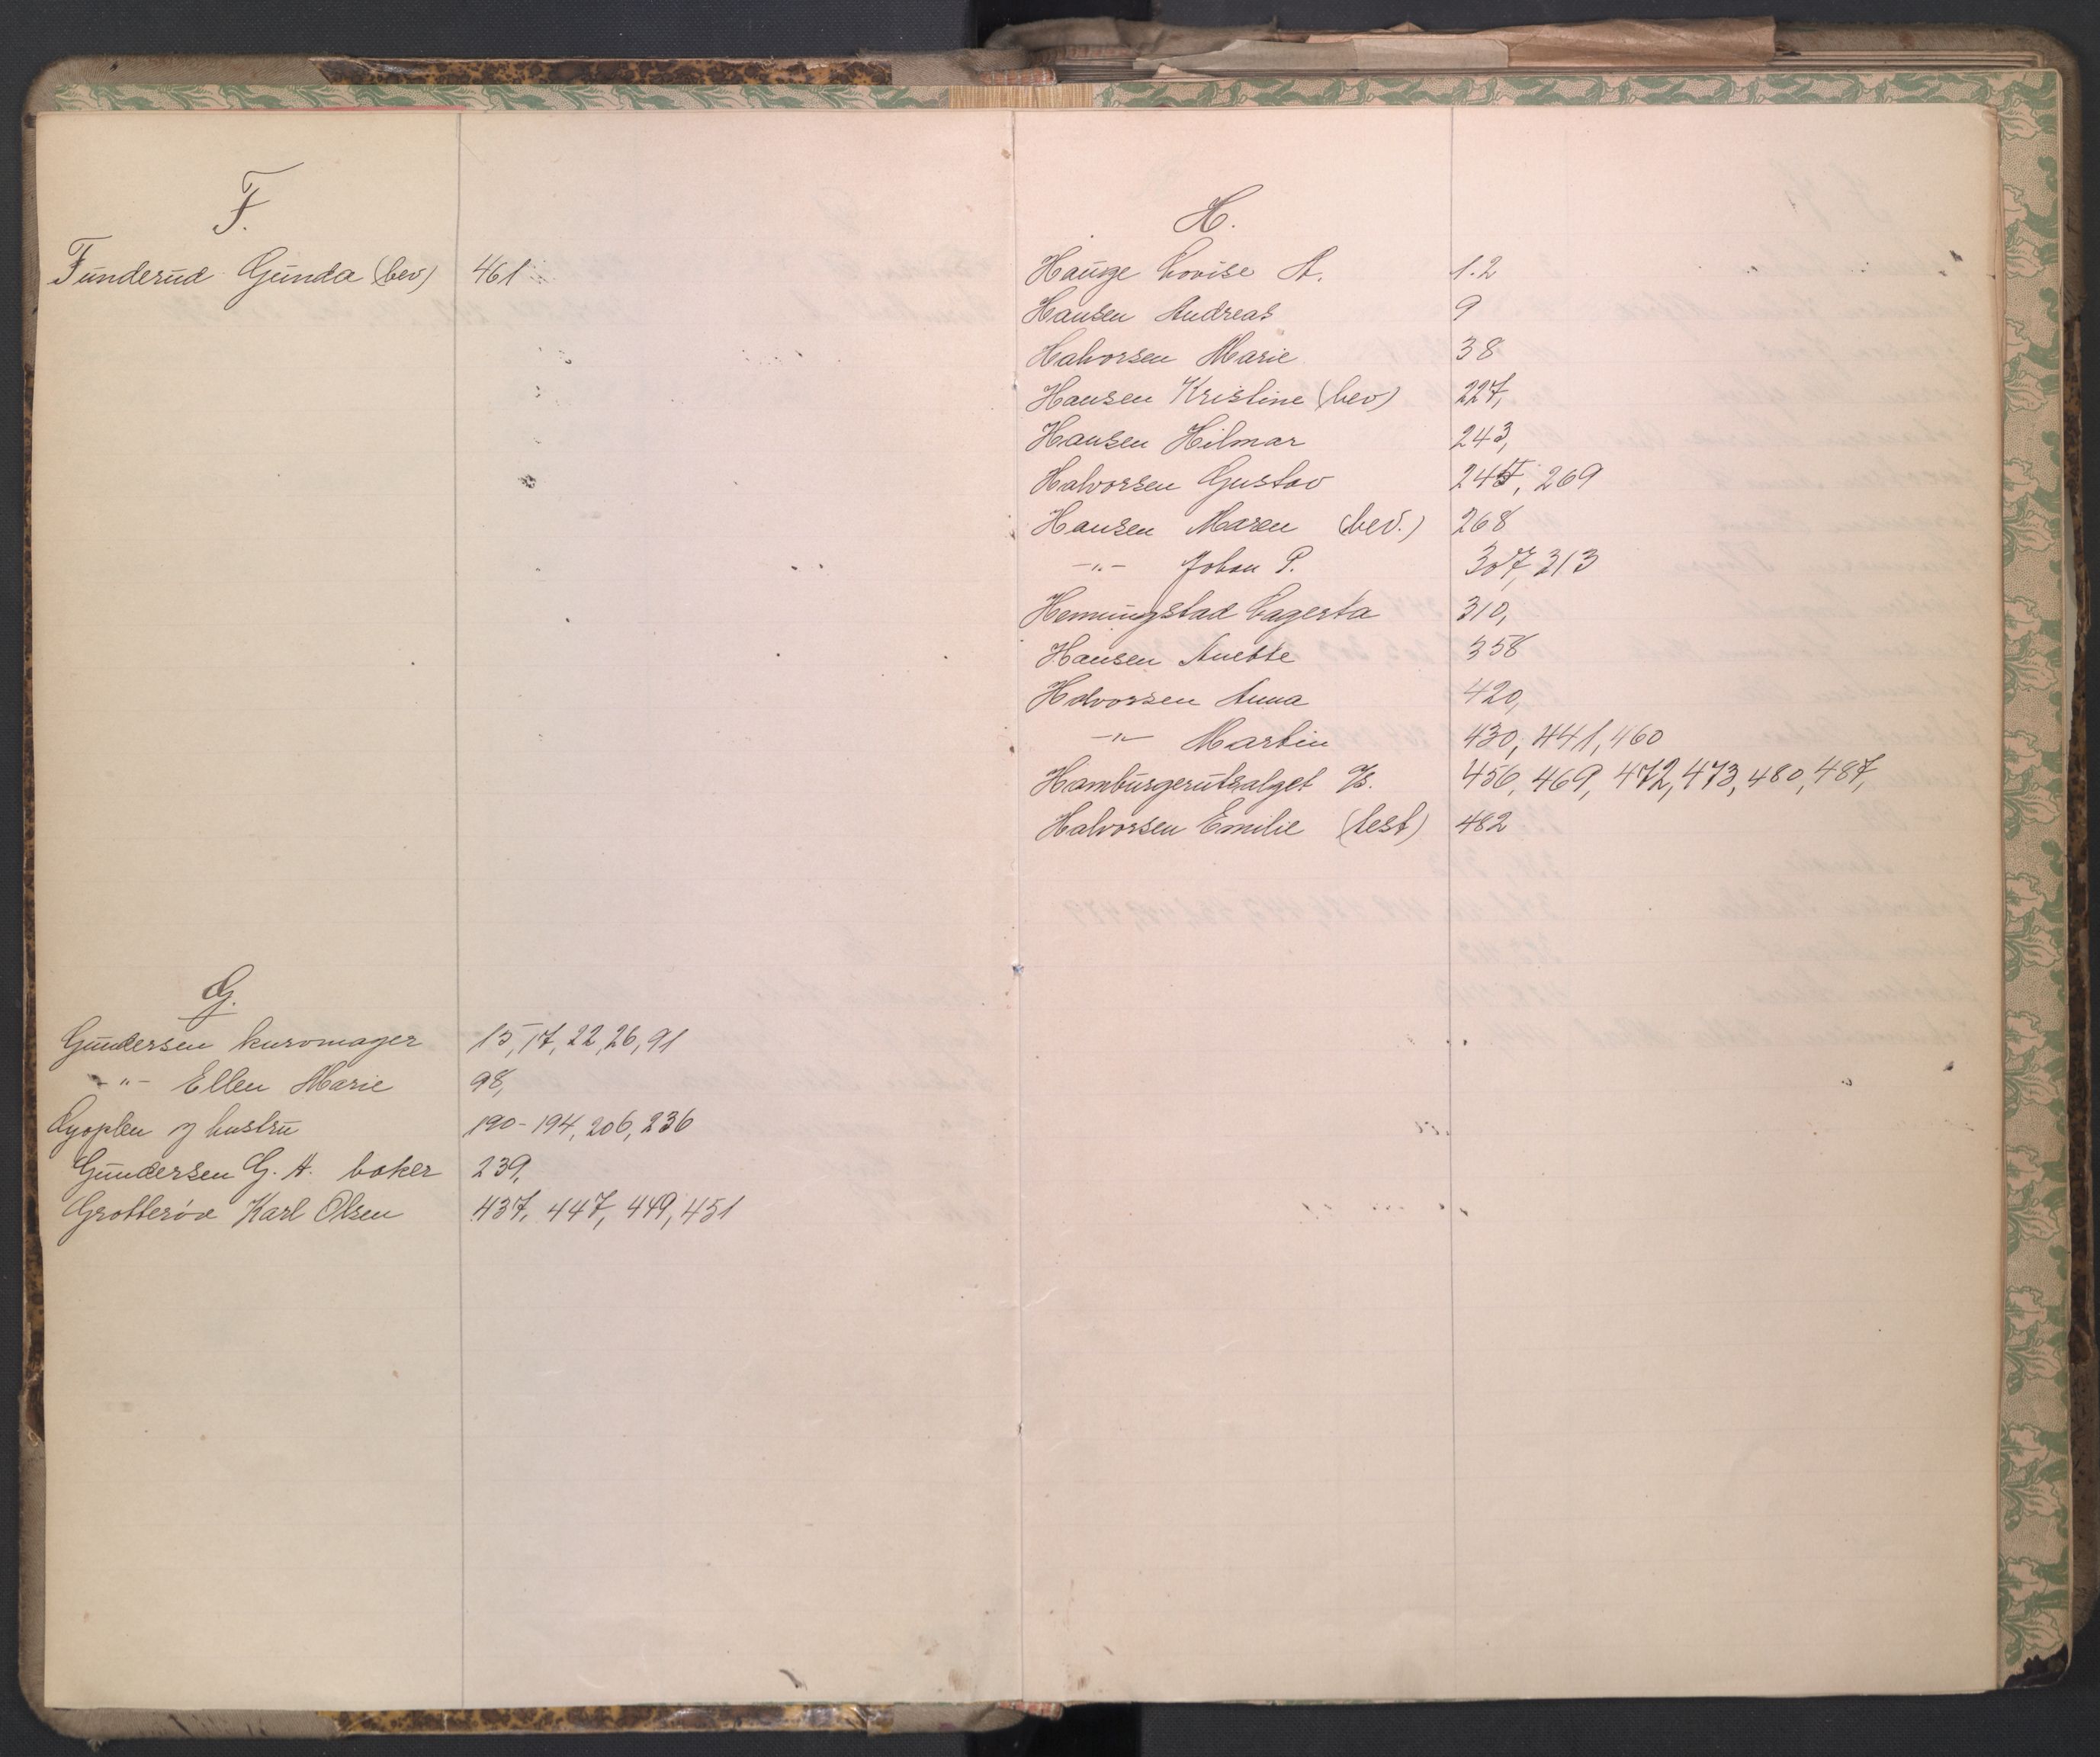 F.
Funderud Gunda (bev) 461
G.
Gundersen kurvmager 15, 17, 22, 26, 91
-"- Ellen Marie 98,
Gjoplen og hustru 190-194, 206, 236
Gundersen G. A. baker 239,
Grotterød Karl Olsen 437, 447, 449, 451
H.
Hauge Lovise A. 1.2
Hansen Andreas 9
Halvorsen Marie 38
Hansen Kristine (bev) 227,
Hansen Hilmar 243,
Halvorsen Gustav 269
Hansen Maren (bev.) 268
-"- Johan P. 307, 313
Hemmingstad Lagerta 310,
Hansen Anette 358
Halvorsen Anna 420,
-"- Martin 430, 441, 460
Hamburgerutsalget A/s. 456, 469, 472, 473, 480, 487,
Halvorsen Emilie (test) 482